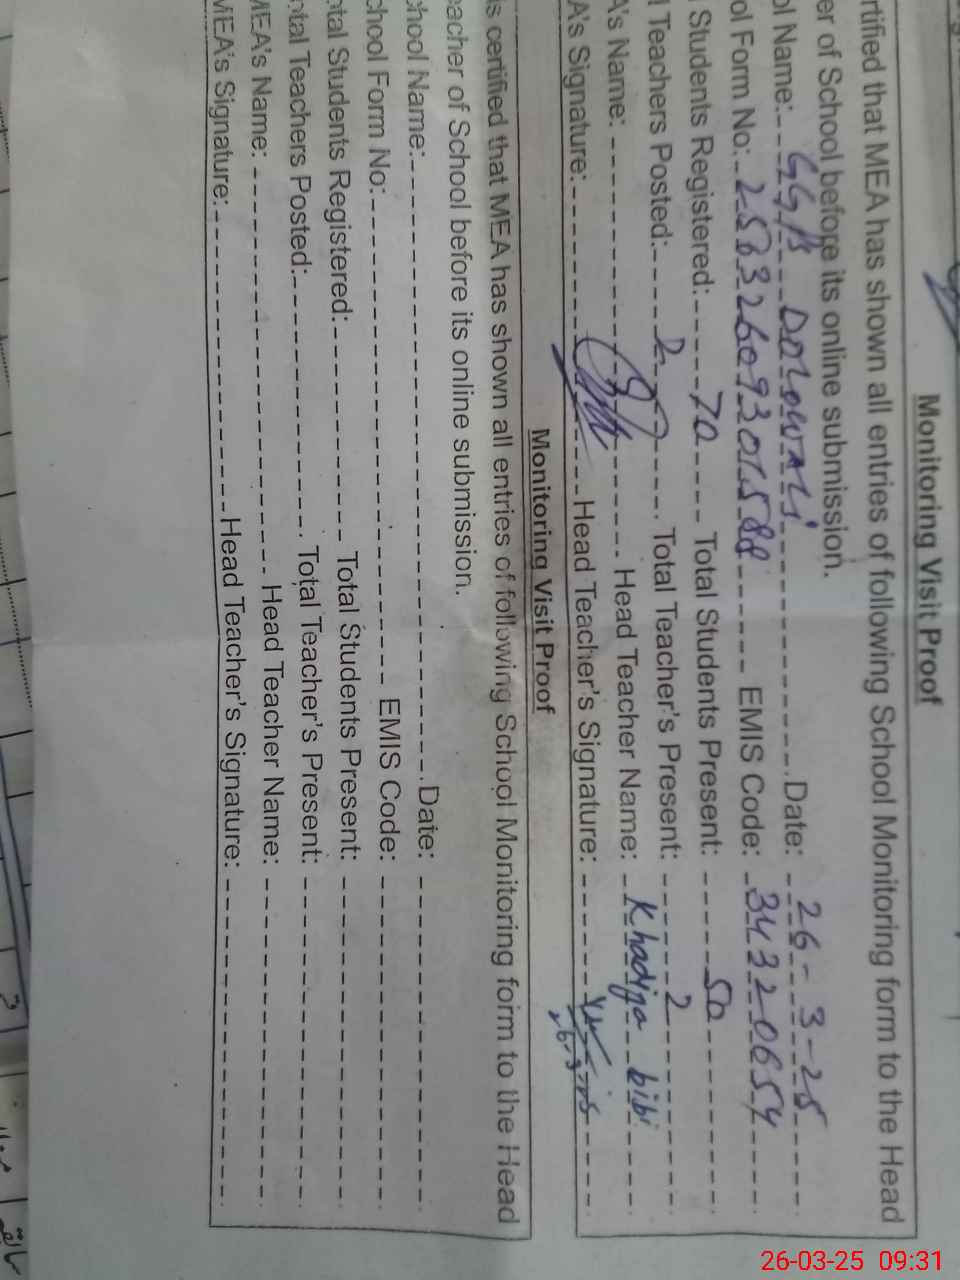 Monitoring Visit Proof
rtified that MEA has shown all entries of following School Monitoring form to the Head
er of School before its online submission.
ol Name: GGPS Dolowali Date: 26-3-25
ol Form No: EMIS Code: 34320654
Students Registered: 70 Total Students Present: 50
l Teachers Posted: 2 Total Teacher's Present: 2
A's Name: Head Teacher Name: Khadija bibi
A's Signature: Head Teacher's Signature:
26-3-25
Monitoring Visit Proof
is certified that MEA has shown all entries of following School Monitoring form to the Head
eacher of School before its online submission.
chool Name: Date:
chool Form No: EMIS Code:
otal Students Registered: Total Students Present:
otal Teachers Posted: Total Teacher's Present:
MEA's Name: Head Teacher Name:
MEA's Signature: Head Teacher's Signature:
26-03-25 09:31